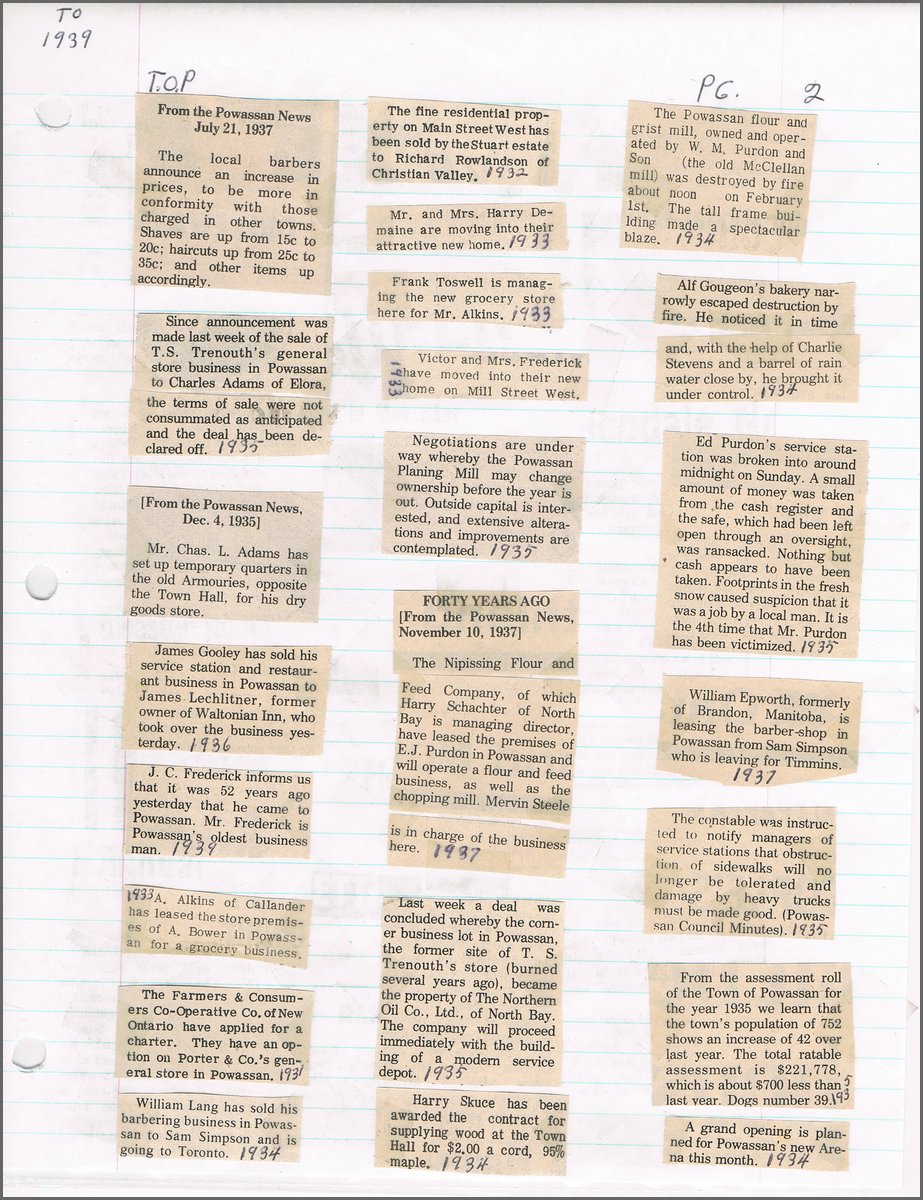 TO
1939
T.O.P
PG. 2
From the Powassan News
July 21, 1937
The local barbers
announce an increase in
prices, to be more in
conformity with those
charged in other towns.
Shaves are up from 15c to
20c; haircuts up from 25c to
35c; and other items up
accordingly.
Since announcement was
made last week of the sale of
T.S. Trenouth's general
store business in Powassan
to Charles Adams of Elora,
the terms of sale were not
consummated as anticipated
and the deal has been de-
clared off. 1935
[From the Powassan News,
Dec. 4, 1935]
Mr. Chas. L. Adams has
set up temporary quarters in
the old Armouries, opposite
the Town Hall, for his dry
goods store.
James Gooley has sold his
service station and restaur-
ant business in Powassan to
James Lechlitner, former
owner of Waltonian Inn, who
took over the business yes-
terday. 1936
J. C. Frederick informs us
that it was 52 years ago
yesterday that he came to
Powassan. Mr. Frederick is
Powassan's oldest business
man. 1939
1933 A. Alkins of Callander
has leased the store premis-
es of A. Bower in Powass-
an for a grocery business.
The Farmers & Consum-
ers Co-Operative Co. of New
Ontario have applied for a
charter. They have an op-
tion on Porter & Co.'s gen-
eral store in Powassan. 1931
William Lang has sold his
barbering business in Powas-
san to Sam Simpson and is
going to Toronto. 1934
The fine residential prop-
erty on Main Street West has
been sold by the Stuart estate
to Richard Rowlandson of
Christian Valley. 1932
Mr. and Mrs. Harry De-
maine are moving into their
attractive new home. 1933
Frank Toswell is manag-
ing the new grocery store
here for Mr. Alkins. 1933
1933
Victor and Mrs. Frederick
have moved into their new
home on Mill Street West.
Negotiations are under
way whereby the Powassan
Planing Mill may change
ownership before the year is
out. Outside capital is inter-
ested, and extensive altera-
tions and improvements are
contemplated. 1935
FORTY YEARS AGO
[From the Powassan News,
November 10, 1937]
The Nipissing Flour and
Feed Company, of which
Harry Schachter of North
Bay is managing director,
have leased the premises of
E.J. Purdon in Powassan and
will operate a flour and feed
business, as well as the
chopping mill. Mervin Steele
is in charge of the business
here. 1937
Last week a deal was
concluded whereby the corn-
er business lot in Powassan,
the former site of T. S.
Trenouth's store (burned
several years ago), became
the property of The Northern
Oil Co., Ltd., of North Bay.
The company will proceed
immediately with the build-
ing of a modern service
depot. 1935
Harry Skuce has been
awarded the contract for
supplying wood at the Town
Hall for $2.00 a cord, 95%
maple. 1934
The Powassan flour and
grist mill, owned and oper-
ated by W. M. Purdon and
Son (the old McClellan
mill) was destroyed by fire
about noon on February
1st. The tall frame bui-
lding made a spectacular
blaze. 1934
Alf Gougeon's bakery nar-
rowly escaped destruction by
fire. He noticed it in time
and, with the help of Charlie
Stevens and a barrel of rain
water close by, he brought it
under control. 1934
Ed Purdon's service sta-
tion was broken into around
midnight on Sunday. A small
amount of money was taken
from the cash register and
the safe, which had been left
open through an oversight,
was ransacked. Nothing but
cash appears to have been
taken. Footprints in the fresh
snow caused suspicion that it
was a job by a local man. It is
the 4th time that Mr. Purdon
has been victimized. 1935
William Epworth, formerly
of Brandon, Manitoba, is
leasing the barber-shop in
Powassan from Sam Simpson
who is leaving for Timmins.
1937
The constable was instruc-
ted to notify managers of
service stations that obstruc-
tion of sidewalks will no
longer be tolerated and
damage by heavy trucks
must be made good. (Powas-
san Council Minutes). 1935
From the assessment roll
of the Town of Powassan for
the year 1935 we learn that
the town's population of 752
shows an increase of 42 over
last year. The total ratable
assessment is $221,778,
which is about $700 less than
last year. Dogs number 39. 1935
A grand opening is plan-
ned for Powassan's new Are-
na this month. 1934